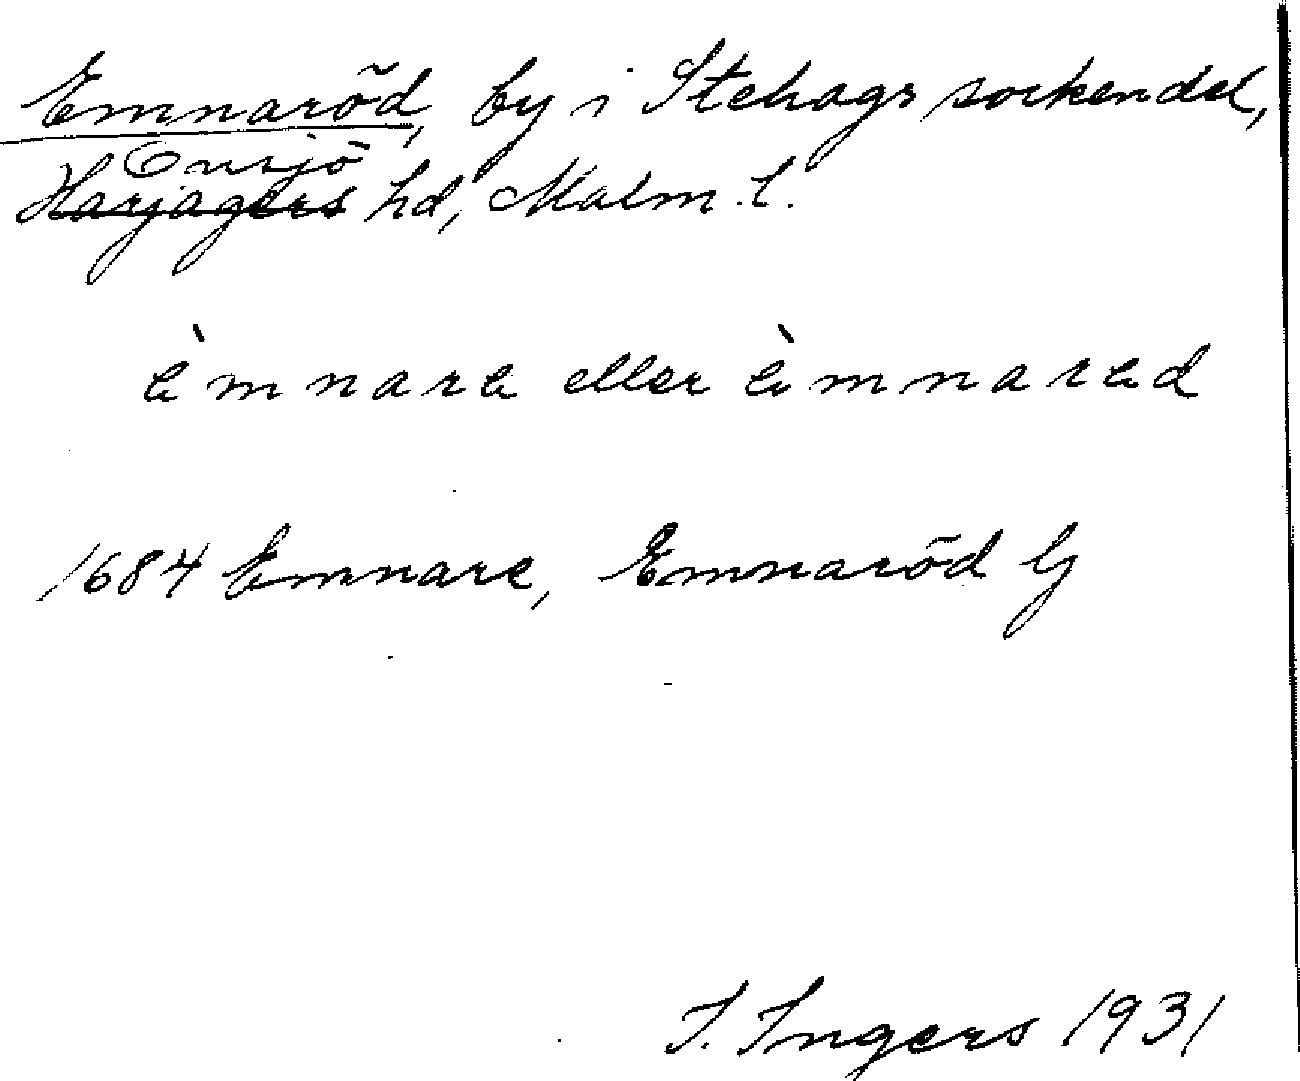 Emnaröd, by i Stehags sockendel,
Onsjö
Harjagers hd, Malm. l.
èmnare eller èmnared
1684 Emnare, Emnaröd Lj
I. Ingers 1931